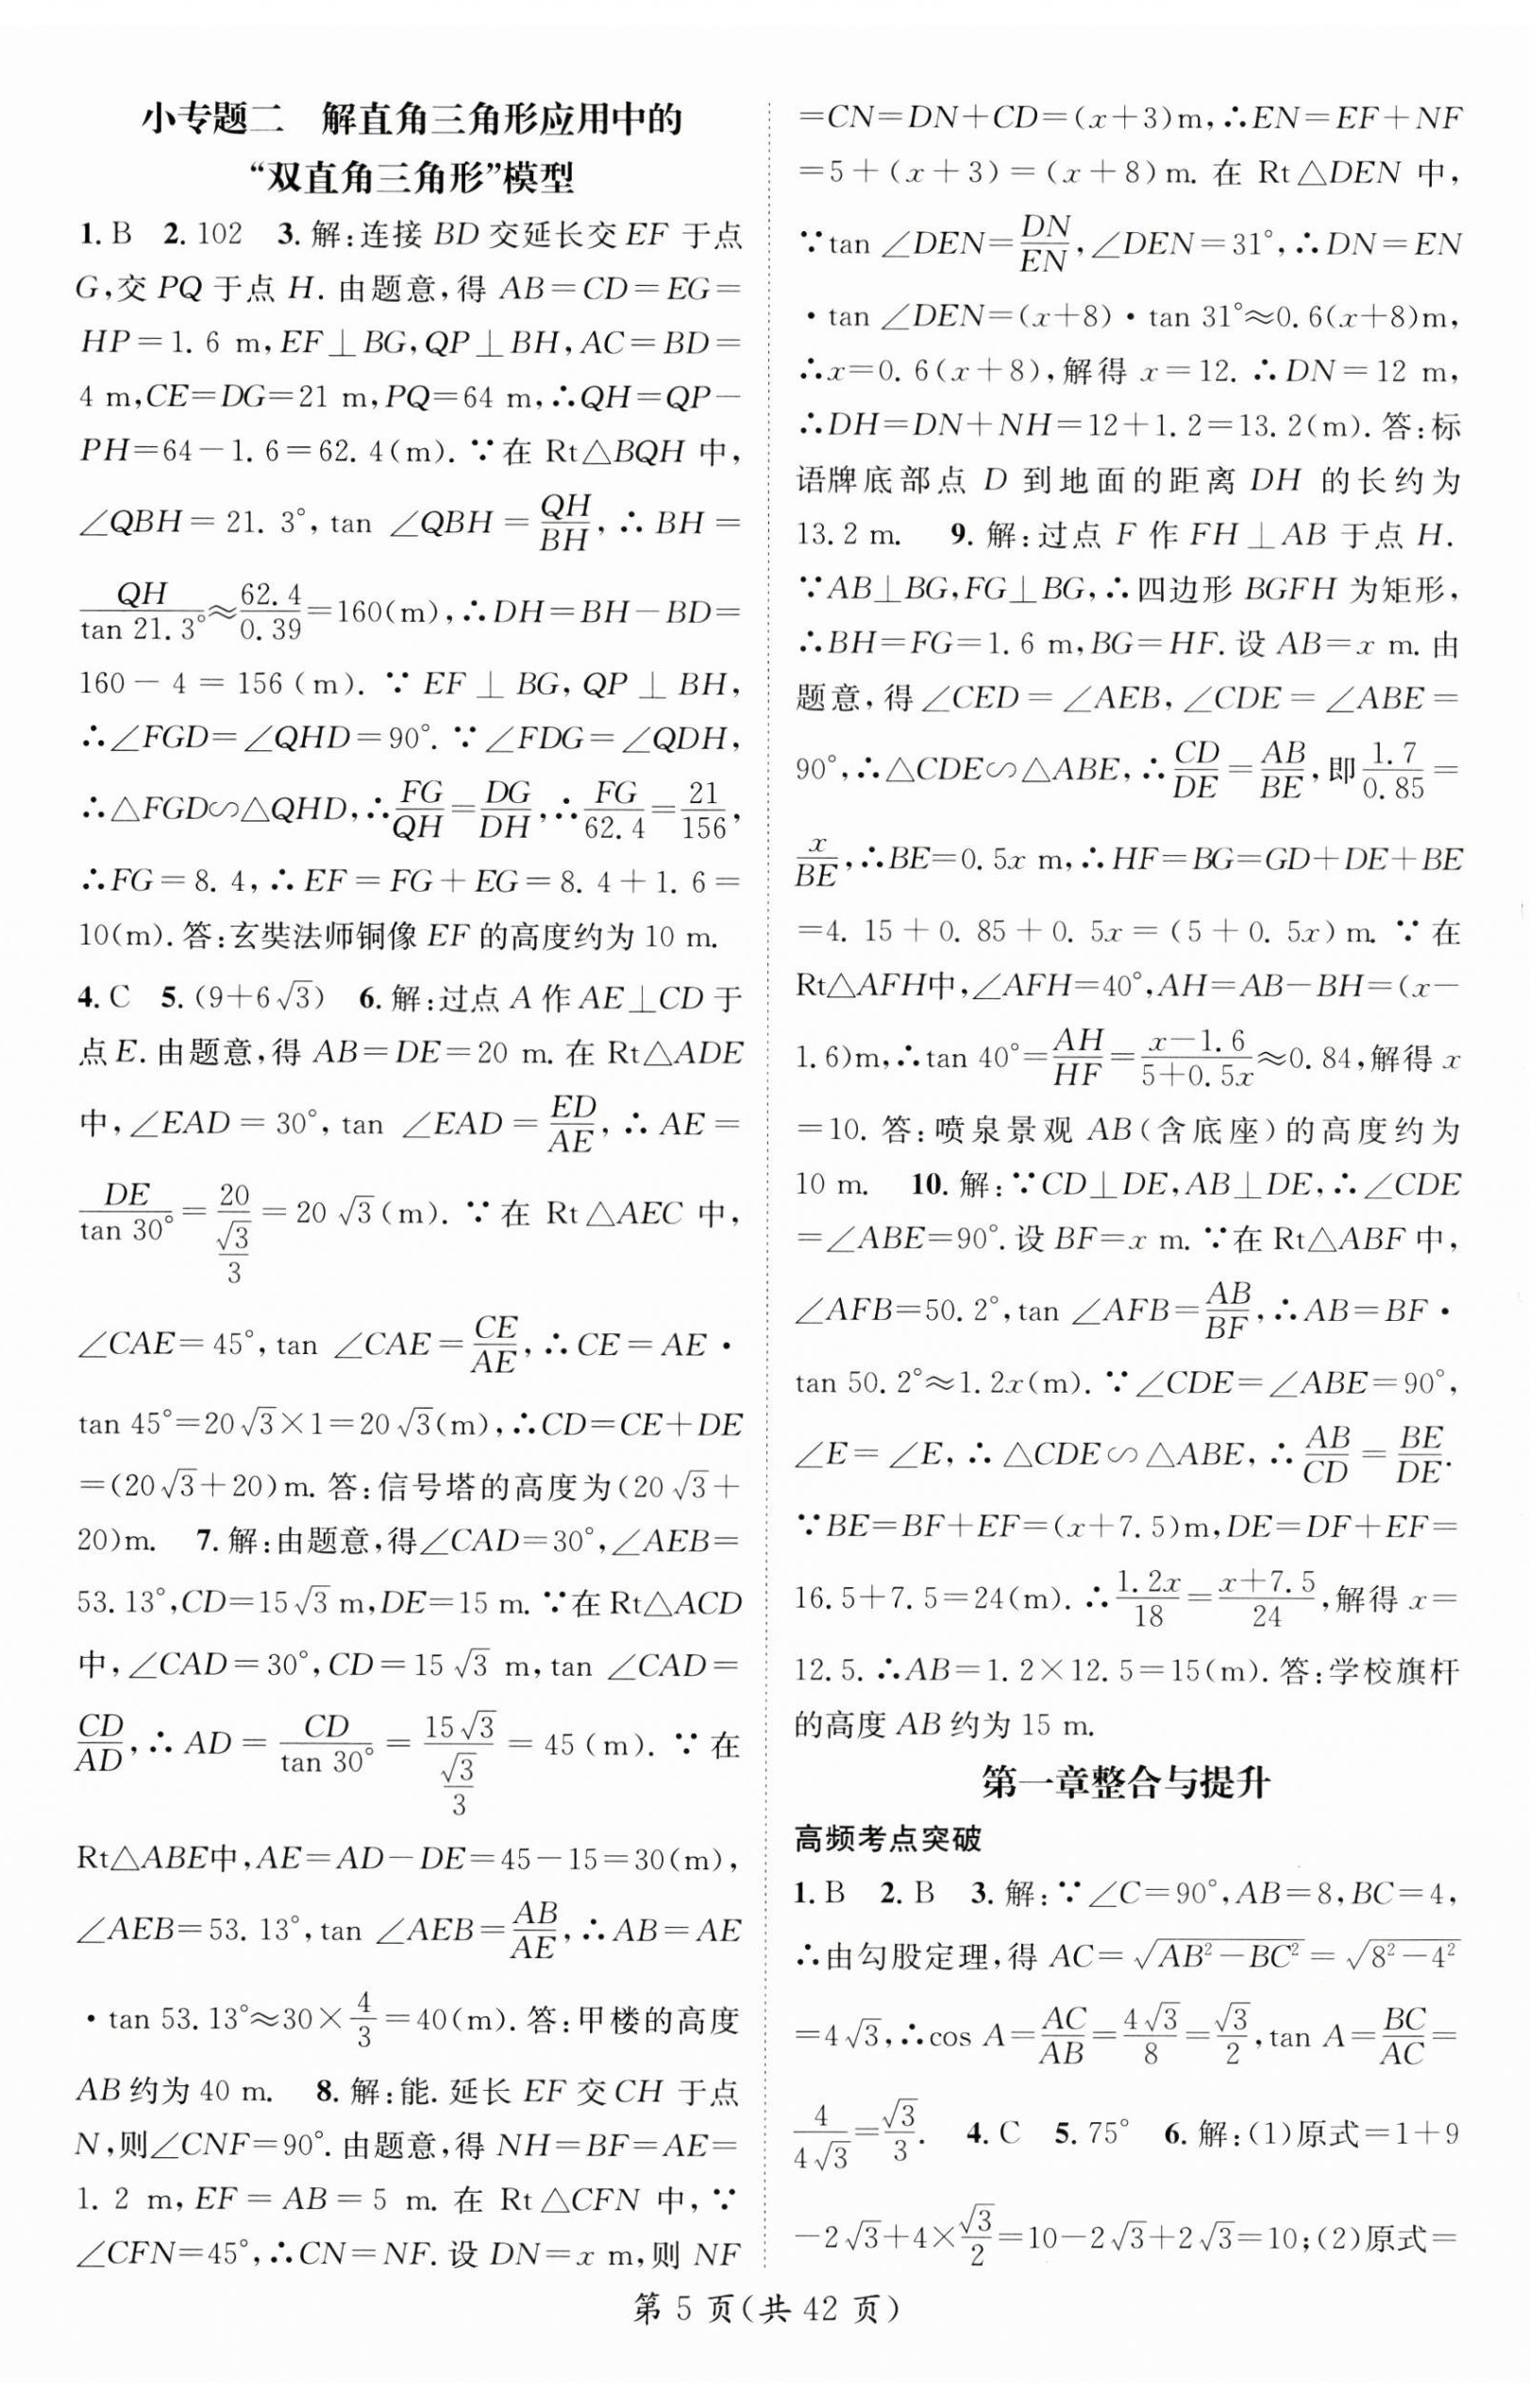 小专题二　解直角三角形应用中的
“双直角三角形”模型
1. B　2. 102　3. 解:连接 BD 交延长交 EF 于点
G,交 PQ 于点 H. 由题意,得 AB=CD=EG=
HP=1. 6 m,EF⊥BG,QP⊥BH,AC=BD=
4 m,CE=DG=21 m,PQ=64 m,∴QH=QP−
PH=64−1. 6=62. 4(m). ∵在 Rt△BQH 中,
∠QBH=21. 3°, tan ∠QBH=QH/BH, ∴ BH=
QH/tan 21. 3°≈62. 4/0. 39=160(m),∴DH=BH−BD=
160−4=156(m). ∵ EF⊥BG, QP⊥BH,
∴∠FGD=∠QHD=90°. ∵∠FDG=∠QDH,
∴△FGD∽△QHD,∴FG/QH=DG/DH,∴FG/62. 4=21/156,
∴FG=8. 4,∴EF=FG+EG=8. 4+1. 6=
10(m). 答:玄奘法师铜像 EF 的高度约为 10 m.
4. C　5. (9+6√3)　6. 解:过点 A 作 AE⊥CD 于
点 E. 由题意,得 AB=DE=20 m. 在 Rt△ADE
中,∠EAD=30°, tan ∠EAD=ED/AE, ∴ AE=
DE/tan 30°=20/(√3/3)=20√3(m). ∵在 Rt△AEC 中,
∠CAE=45°, tan ∠CAE=CE/AE, ∴CE=AE·
tan 45°=20√3×1=20√3(m),∴CD=CE+DE
=(20√3+20)m. 答:信号塔的高度为(20√3+
20)m.　7. 解:由题意,得∠CAD=30°,∠AEB=
53. 13°,CD=15√3 m,DE=15 m. ∵在 Rt△ACD
中,∠CAD=30°,CD=15√3 m,tan ∠CAD=
CD/AD,∴ AD=CD/tan 30°=15√3/(√3/3)=45(m). ∵在
Rt△ABE中,AE=AD−DE=45−15=30(m),
∠AEB=53. 13°,tan ∠AEB=AB/AE,∴AB=AE
·tan 53. 13°≈30×4/3=40(m). 答:甲楼的高度
AB约为 40 m.　8. 解:能. 延长 EF 交 CH 于点
N,则∠CNF=90°. 由题意,得 NH=BF=AE=
1. 2 m, EF=AB=5 m. 在 Rt△CFN 中,∵
∠CFN=45°,∴CN=NF. 设 DN=x m,则 NF
=CN=DN+CD=(x+3)m,∴EN=EF+NF
=5+(x+3)=(x+8)m. 在 Rt△DEN 中,
∵tan ∠DEN=DN/EN,∠DEN=31°,∴DN=EN
·tan ∠DEN=(x+8)·tan 31°≈0. 6(x+8)m,
∴x=0. 6(x+8),解得 x=12. ∴DN=12 m,
∴DH=DN+NH=12+1. 2=13. 2(m). 答:标
语牌底部点 D 到地面的距离 DH 的长约为
13. 2 m.　9. 解:过点 F 作 FH⊥AB 于点 H.
∵AB⊥BG,FG⊥BG,∴四边形 BGFH 为矩形,
∴BH=FG=1. 6 m,BG=HF. 设 AB=x m. 由
题意,得∠CED=∠AEB,∠CDE=∠ABE=
90°,∴△CDE∽△ABE,∴CD/DE=AB/BE,即1. 7/0. 85=
x/BE,∴BE=0. 5x m,∴HF=BG=GD+DE+BE
=4. 15+0. 85+0. 5x=(5+0. 5x)m. ∵在
Rt△AFH中,∠AFH=40°,AH=AB−BH=(x−
1. 6)m,∴tan 40°=AH/HF=(x−1. 6)/(5+0. 5x)≈0. 84,解得 x
=10. 答:喷泉景观 AB(含底座)的高度约为
10 m.　10. 解:∵CD⊥DE,AB⊥DE,∴∠CDE
=∠ABE=90°. 设 BF=x m. ∵在 Rt△ABF 中,
∠AFB=50. 2°,tan ∠AFB=AB/BF,∴AB=BF·
tan 50. 2°≈1. 2x(m). ∵∠CDE=∠ABE=90°,
∠E=∠E,∴△CDE∽△ABE,∴AB/CD=BE/DE.
∵BE=BF+EF=(x+7. 5)m,DE=DF+EF=
16. 5+7. 5=24(m). ∴1. 2x/18=(x+7. 5)/24,解得 x=
12. 5. ∴AB=1. 2×12. 5=15(m). 答:学校旗杆
的高度 AB 约为 15 m.
第一章整合与提升
高频考点突破
1. B　2. B　3. 解:∵∠C=90°,AB=8,BC=4,
∴由勾股定理,得 AC=√(AB²−BC²)=√(8²−4²)
=4√3,∴cos A=AC/AB=4√3/8=√3/2,tan A=BC/AC=
4/4√3=√3/3.　4. C　5. 75°　6. 解:(1)原式=1+9
−2√3+4×√3/2=10−2√3+2√3=10;(2)原式=
第 5 页(共 42 页)